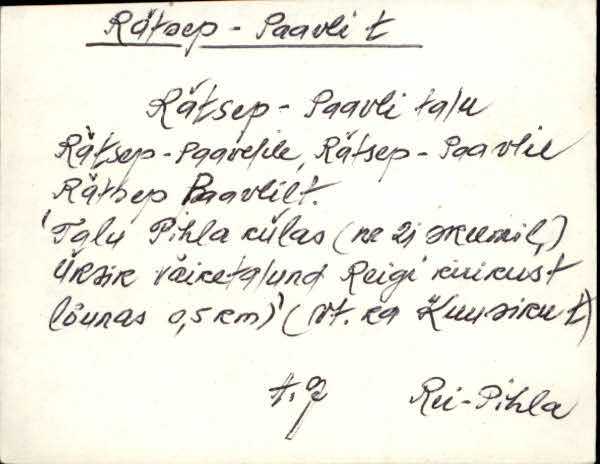 Rätsep-Paavli t
Rätsep-Paavli talu
Rätsep-Paavelile, Rätsep-Paavlil
Rätsep Paavlilt.
'Talu Pihla külas (
Üksik väiketalund Reigi kirikust
lõunas 0,5 km)' (vt. ka Kuusiku t)
Rei-Pihla